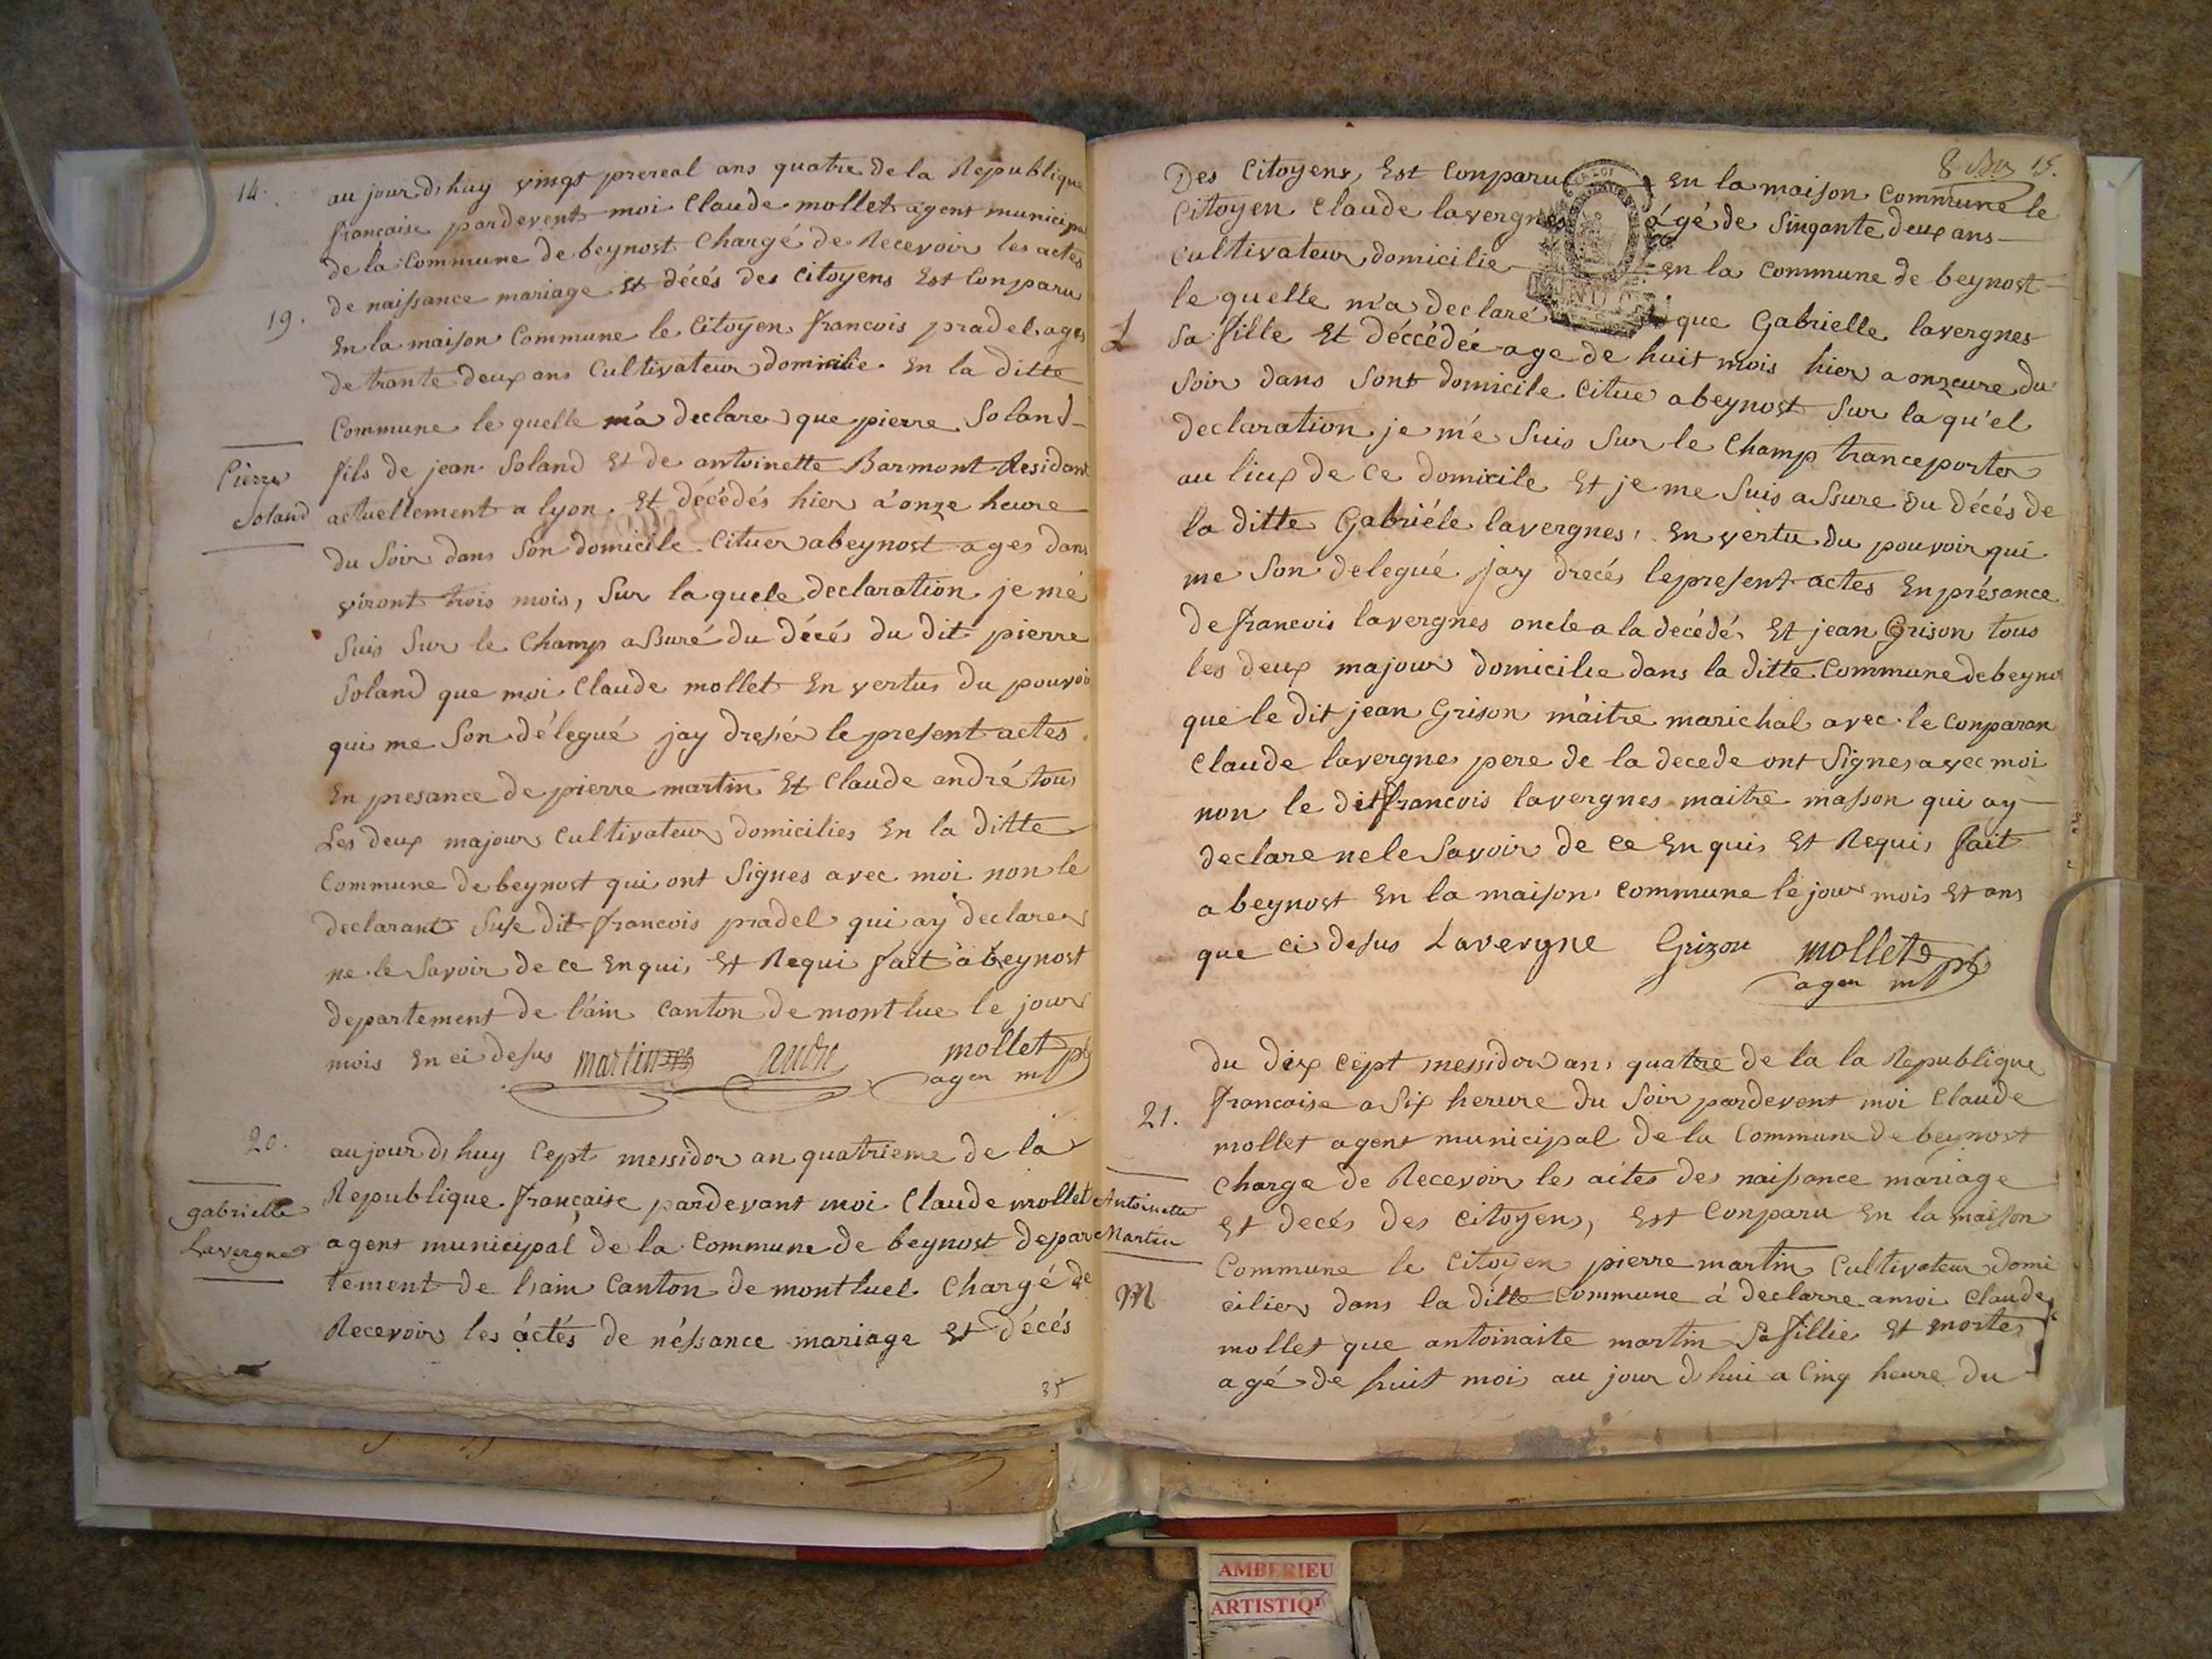 14.
au jour d huy vingt prereal ans quatre de la Republique
francaise pardevent moi Claude mollet agent municipal
de la Commune de beynost Chargé de Recevoir les actes
de naissance mariage Et décés des Citoyens Est Conparu
19.
En la maison Commune le Citoyen francois pradel ages
de trante deux ans Cultivateur domicilie En la ditte
Commune le quelle m'a declare que pierre Soland
Pierre
Soland
fils de jean Soland Et de antoinette Barmont Residant
actuellement a lyon. Et décédés hier a onze heure
du Soir dans Son domicile Cituer a beynost ages dans
viront trois mois, Sur la quele declaration je mé
Suis Sur le Champ assuré du décés du dit pierre
Soland que moi Claude mollet En vertus du pouvoir
qui me Son délegué jay dressér le present actes
En presance de pierre martin Et Claude andré tous
Les deux majour Cultivateur domicilies En la ditte
Commune de beynost qui ont Signes avec moi non le
declarant Suse dit francois pradel qui ay declarer
ne le Savoir de ce En quis Et Requi fait a beynost
departement de l'ain Canton de montlue le jour
mois En ci desus martin andre mollet
agen m
20.
au jour d huy Cept messidor an quatrieme de la
gabrielle
Lavergne
Republique francaise pardevant moi Claude mollet
agent municipal de la Commune de beynost depar
tement de lain Canton de montluel Chargé de
Recevoir les áctés de néssance mariage Et décés
35
8 15.
Des Citoyens, Est Conparu En la maison Commune le
Citoyen Claude lavergnes ágé de Sinqante deux ans
Cultivateur domicilie En la Commune de beynost
le quelle m'a declaré que Gabrielle lavergnes
L
Sa fille Et déccédée age de huit mois hier a onzeure du
Soir dans Sont domicile Citue a beynost Sur la qu'el
declaration je m'é Suis Sur le Champ tranceporter
au lieux de Ce domicile Et je me Suis assure du décés de
la ditte Gabriéle lavergnes, En vertu du pouvoir qui
me Son delegué jay drecés le present actes En présance
de francois lavergnes oncle a la decédés Et jean Grison tous
les deux majour domicilie dans la ditte Commune de beyno
que le dit jean Grison máitre marichal avec le Conparan
Claude lavergnes pere de la decede ont Signes avec moi
non le dit francois lavergnes maitre masson qui ay
declare ne le Savoir de Ce En quis Et Requis fait
a beynost En la maison Commune le jour mois Et ans
que ci desus Lavergne Grizon mollet
agen m
du dix cept messidor ans quatere de la la Republique
21.
francaise a Six herure du Soir pardevent moi Claude
mollet agent municipal de la Commune de beynost
Charge de Recevoir les actes des naissance mariage
Antoinette
Martin
Et decés des Citoyens, Est Conparu En la maison
Commune le Citoyen pierre martin Cultivateur domi
M
cilier dans la ditte Commune á declarre amoi Claude
mollet que antoinaite martin Sa fillie Et mortes
agé de huit mois au jour d hui a Cinq heure du
AMBERIEU
ARTISTIQ